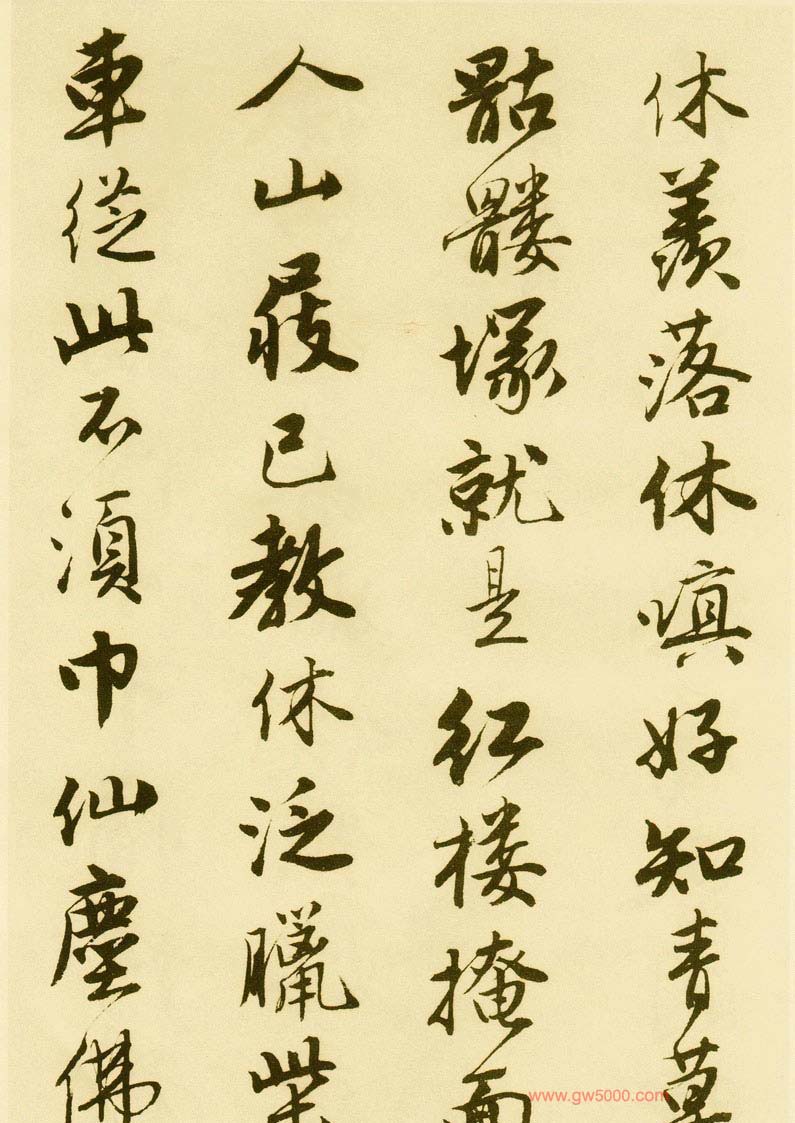 休羨落休嗔好知青草
骷髏塚就是紅樓掩面
人山屐已教休泛臘柴
車從此不須巾仙塵佛
www.gw5000.com